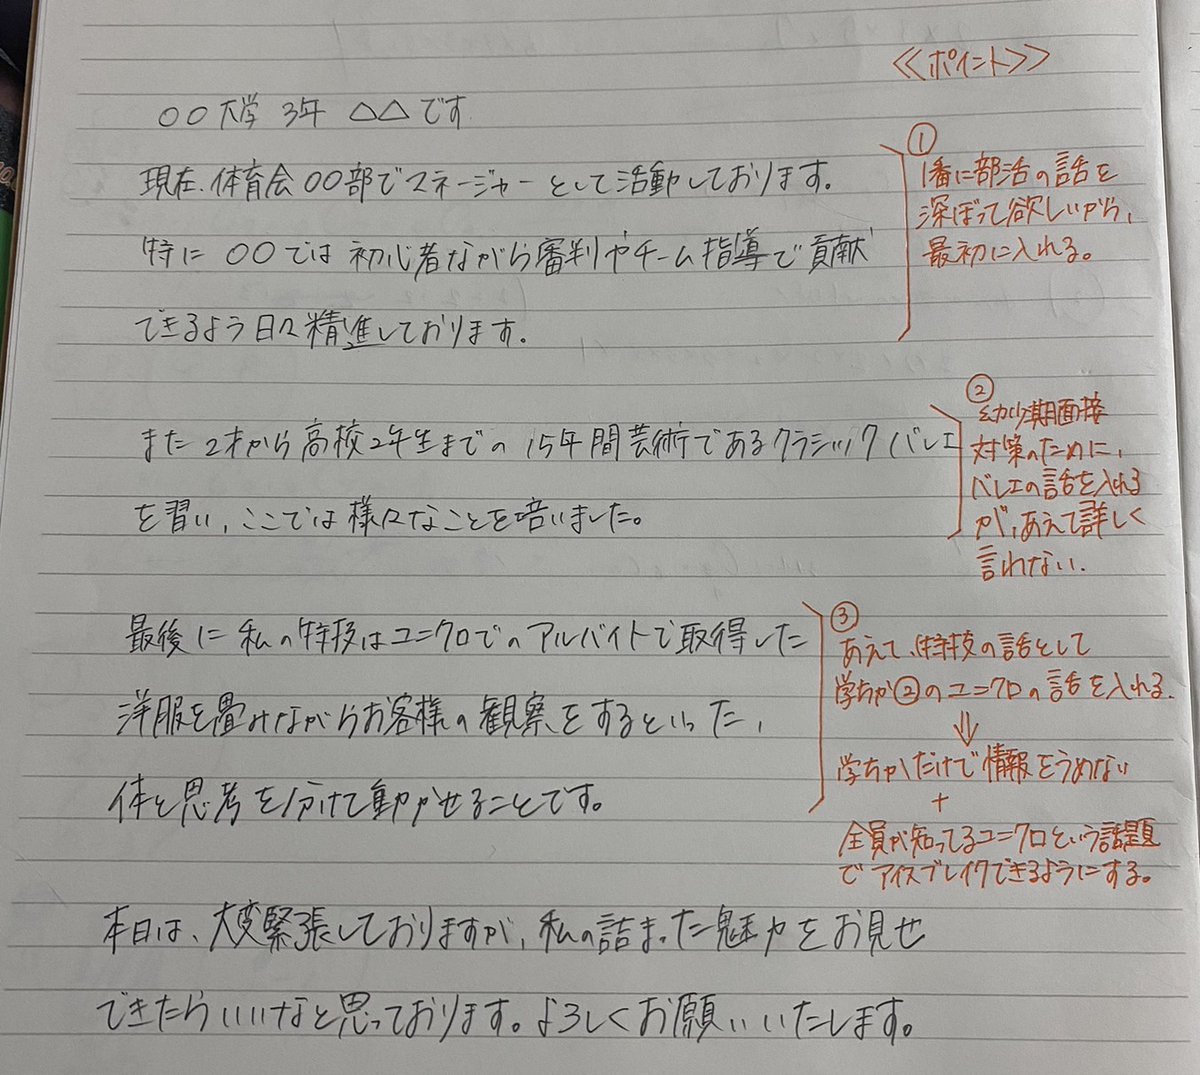 〇〇大学 3年 △△です
現在、体育会〇〇部でマネージャーとして活動しております。
特に〇〇では初心者ながら審判やチーム指導で貢献
できるよう日々精進しております。
また2才から高校2年生までの15年間芸術であるクラシックバレエ
を習い、ここでは様々なことを培いました。
最後に私の特技はユニクロでのアルバイトで取得した
洋服を畳みながらお客様の観察をするといった、
体と思考を分けて動かせることです。
本日は、大変緊張しておりますが、私の詰まった魅力をお見せ
できたらいいなと思っております。よろしくお願いいたします。
≪ポイント≫
①
1番に部活の話を
深ぼって欲しいから、
最初に入れる。
②
幼少期面接
対策のために、
バレエの話を入れる
が、あえて詳しく
言れない.
③
あえて、特技の話として
学ちか②のユニクロの話を入れる.
⇓
学ちかだけで情報をうめない
+
全員が知ってるユニクロという話題
でアイスブレイクできるようにする。